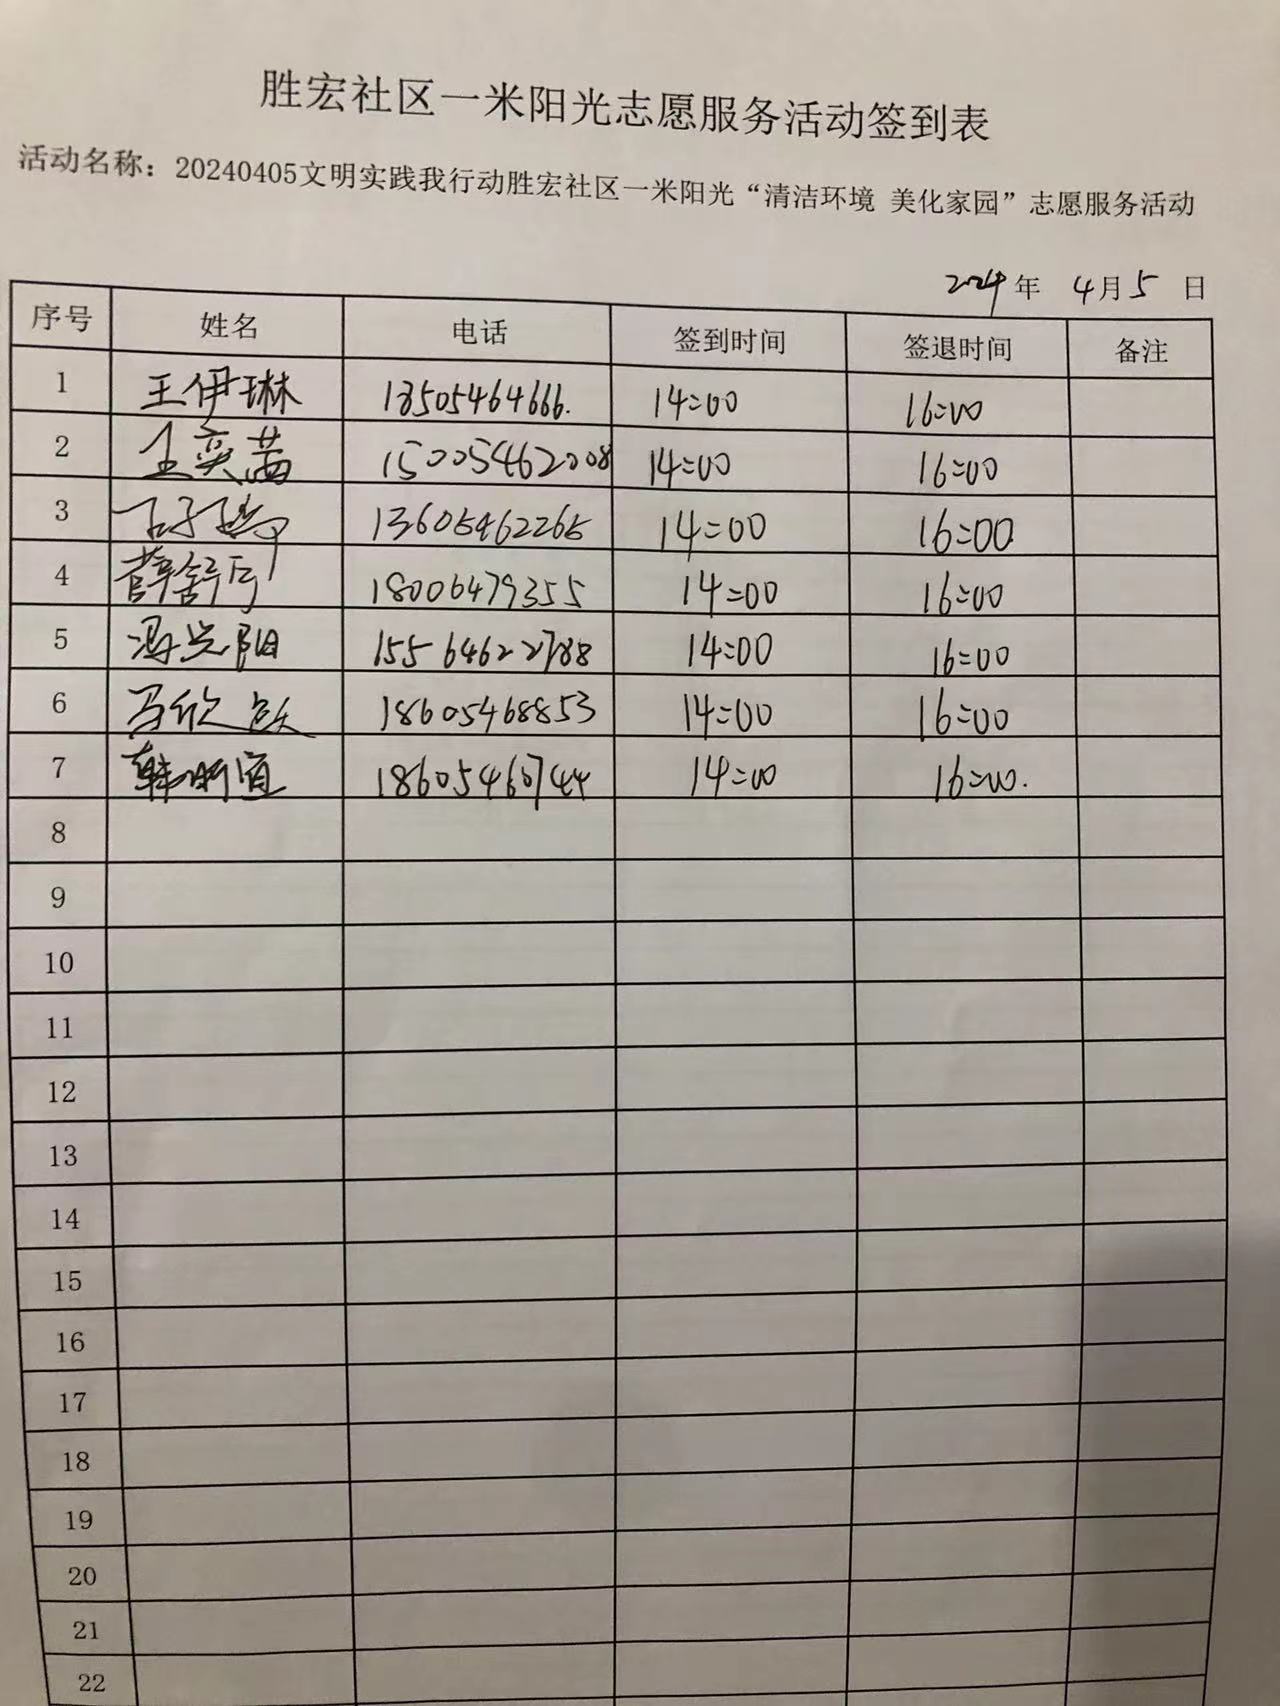 胜宏社区一米阳光志愿服务活动签到表
活动名称：20240405文明实践我行动胜宏社区一米阳光“清洁环境 美化家园”志愿服务活动
2024年 4月5 日
序号 姓名 电话 签到时间 签退时间 备注
1 王伊琳 13505464666. 14:00 16:00
2 王奕茜 15005462008 14:00 16:00
3 13605462265 14:00 16:00
4 薛舒 18006479355 14:00 16:00
5 阳 15564622788 14:00 16:00
6 马欣 18605468853 14:00 16:00
7 韩明 18605460744 14:00 16:00.
8
9
10
11
12
13
14
15
16
17
18
19
20
21
22